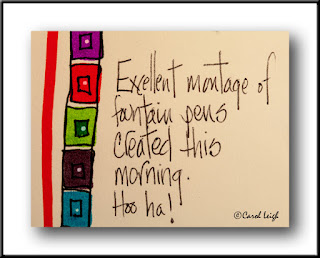 Excellent montage of
fountain pens
created this
morning.
Hoo ha!
©Carol Leigh